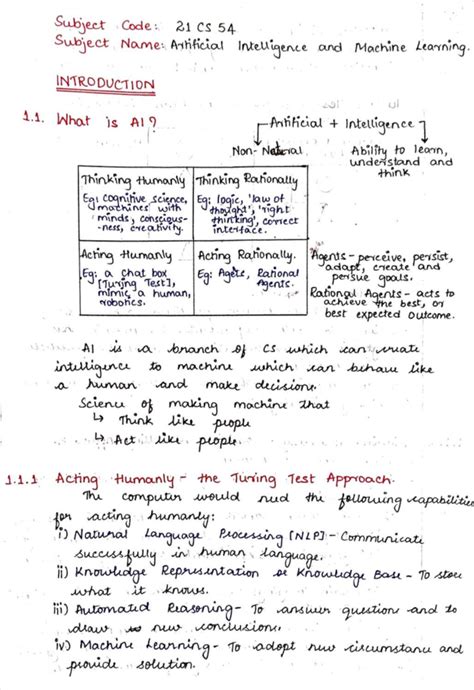 Subject Code: 21 CS 54
Subject Name: Artificial Intelligence and Machine Learning.
INTRODUCTION
1.1. What is AI?
Artificial + Intelligence
Non-Natural
Ability to learn,
understand and
think
Thinking Humanly
Eg: cognitive science,
machines with
minds, conscious-
-ness, creativity.
Thinking Rationally
Eg: logic, 'law of
thought', 'right
thinking', correct
interface.
Acting Humanly
Eg: a chat box
[Turing Test],
mimic a human,
robotics.
Acting Rationally.
Eg: Agets, Rational
Agents.
Agents - perceive, persist,
adapt, create and
persue goals.
Rational Agents - acts to
achieve the best, or
best expected outcome.
AI is a branch of CS which can create
intelligence to machine which can behave like
a human and make decisions.
Science of making machine that
↳ Think like people
↳ Act like people.
1.1.1 Acting Humanly - the Turing Test Approach.
The computer would need the following capabilities
for acting humanly:
i) Natural Language Processing [NLP] - Communicate
successfully in human language.
ii) Knowledge Representation or Knowledge Base - To store
what it knows.
iii) Automated Reasoning - To answer question and to
draw new conclusions.
iv) Machine Learning - To adopt new circumstance and
provide solution.